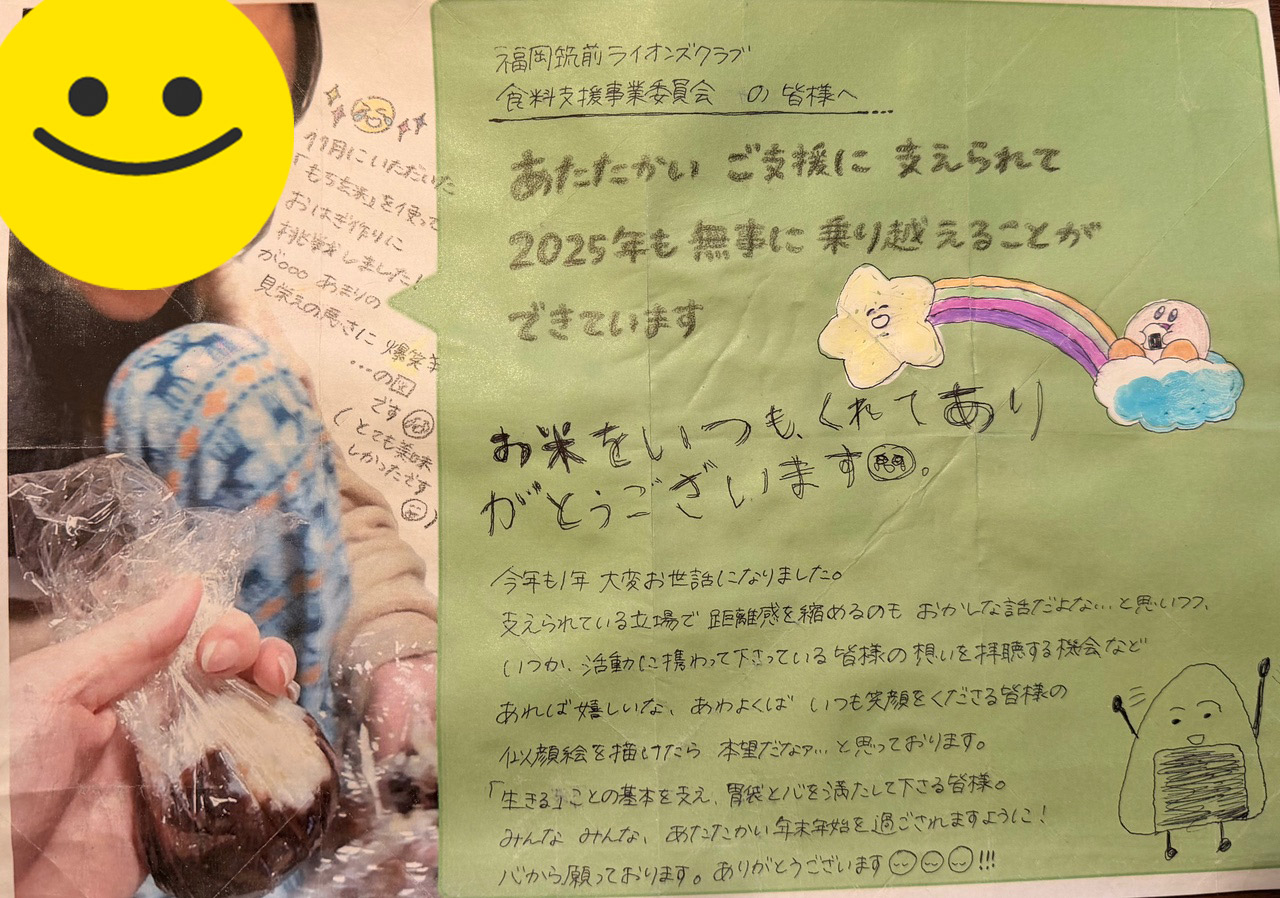 福岡筑前ライオンズクラブ
食料支援事業委員会 の 皆様へ
あたたかい ご支援に 支えられて
2025年も 無事に 乗り越えることが
できています
お米をいつも、くれてあり
がとうございます。
今年も1年 大変お世話になりました。
支えられている立場で 距離感を縮めるのも おかしな話だよな…と思いつつ、
いつか、活動に携わって下さっている 皆様の 想いを拝聴する機会など
あれば嬉しいな、あわよくば いつも笑顔をくださる皆様の
似顔絵を描けたら 本望だなァ…と思っております。
「生きる」ことの基本を支え、胃袋と心を満たして下さる皆様。
みんな みんな、あたたかい年末年始を過ごされますように！
心から願っております。ありがとうございます!!!
11月にいただいた
「もち玄米」を使って
おはぎ作りに
挑戦しました！
が。。。あまりの
見栄えの悪さに 爆笑
…の図
です
(とても美味
しかったです
)